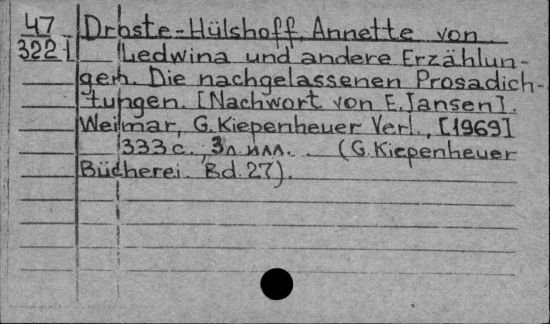 47 Droste-Hülshoff, Annette von.
3221 Ledwina und andere Erzählun-
gen. Die nachgelassenen Prosadich-
tungen. [Nachwort von E. Jansen].
Weimar, G. Kiepenheuer Verl., [1969]
333 с., 3 л. илл. (G. Kiepenheuer
Bücherei. Bd. 27).